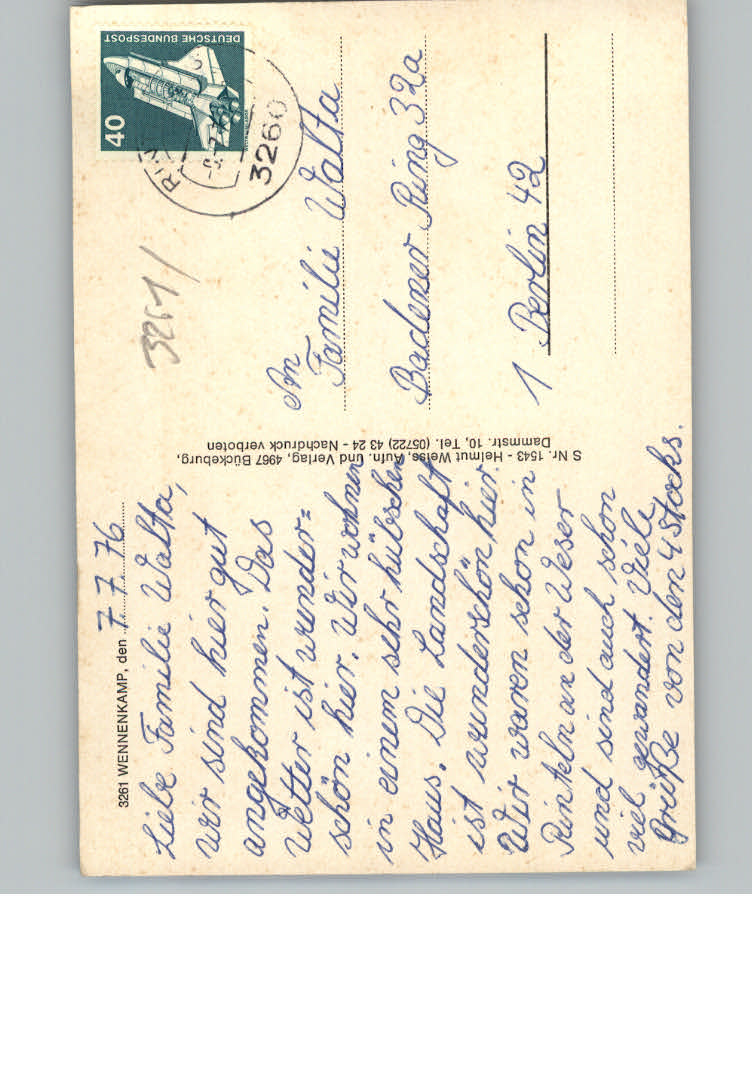 3261 WENNENKAMP, den 7.7.76
Liebe Familie Walta,
wir sind hier gut
angekommen. Das
Wetter ist wunder=
schön hier. Wir wohnen
in einem sehr hübschen
Haus. Die Landschaft
ist wunderschön hier.
Wir waren schon in
Rinteln an der Weser
und sind auch schon
viel gewandert. Viele
Grüße von den 4 Stocks.
S Nr. 1543 - Helmut Weiss, Aufn. und Verlag, 4967 Bückeburg,
Dammstr. 10, Tel. (05722) 43 24 - Nachdruck verboten
DEUTSCHE BUNDESPOST
40
3260
3261/
An
Familie Walta
Badener Ring 32a
1 Berlin 42